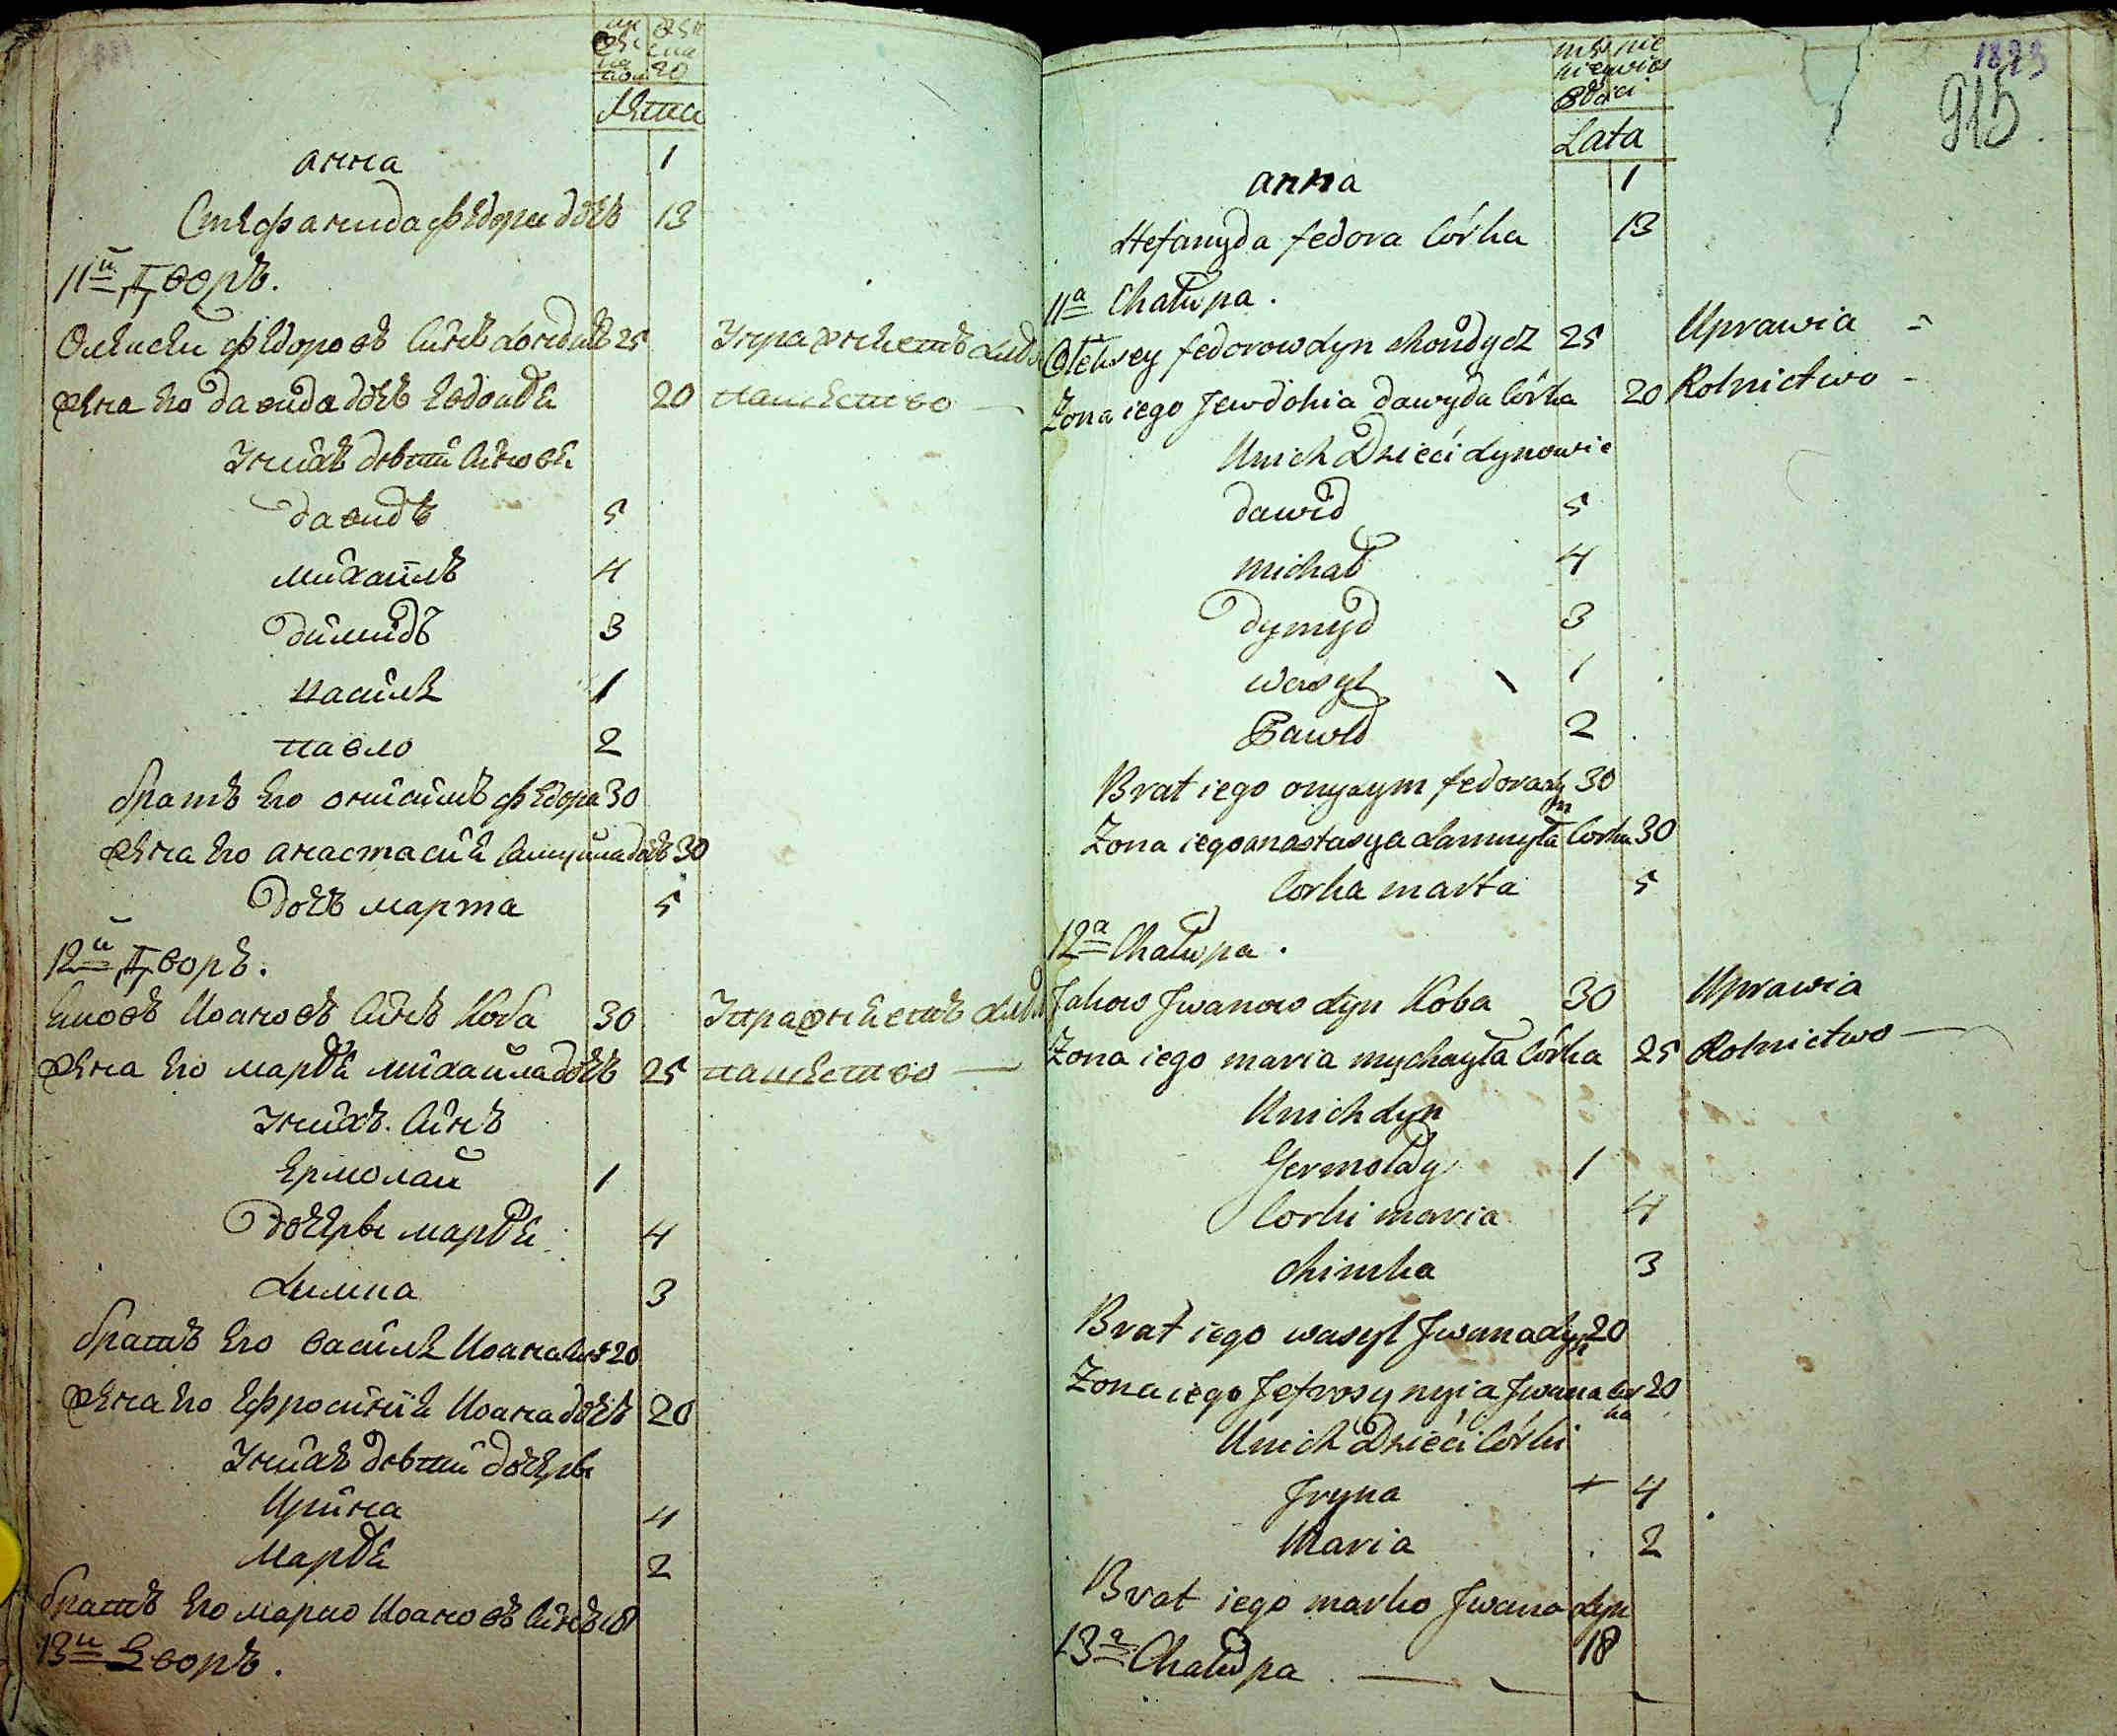 Лѣта
анна 1
Стефанида федора дочь 13
11й Дворъ.
Олексей федоровъ синъ 25
жена его давида дочь Евдокія 20
Унихъ дѣти синове
давидъ 5
михаилъ 4
димидъ 3
василь 1
павло 2
братъ его онисимъ федора 30
жена его анастасия дочь 30
дочь марта 5
12й Дворъ.
Яковъ Иоановъ синъ Коба 30
жена его мария михайла дочь 25
Унихъ синъ
Ермолай 1
дочеры мария 4
химка 3
братъ его василь Иоана синъ 20
жена его Ефросиния Иоана дочь 20
Унихъ дѣти дочеры
Ирина 4
Мария 2
братъ его марко Иоановъ синъ 18
13й Дворъ.
1893
915
Lata
anna 1
Stefanyda fedora Córka 13
11a Chałupa.
Oleksey fedorow Syn 25 Uprawia
Zona iego Jewdokia dawyda Córka 20 Rolnictwo
Unich Dzieci Synowie
dawid 5
michał 4
dymyd 3
wasyl 1
Pawło 2
Brat iego onyzym fedora Syn 30
Zona iego anastasya Samuyła Corka 30
Corka marta 5
12a Chałupa.
Jakow Jwanow Syn Koba 30 Uprawia
Zona iego maria mychayła Córka 25 Rolnictwo
Unich Syn
Jermołay 1
Corki maria 4
Chimka 3
Brat iego wasyl Jwana Syn 20
Zona iego Jefrosynyia Jwana Corka 20
Unich Dzieci Córki
Jryna + 4
Maria 2
Brat iego marko Jwana Syn 18
13a Chałupa